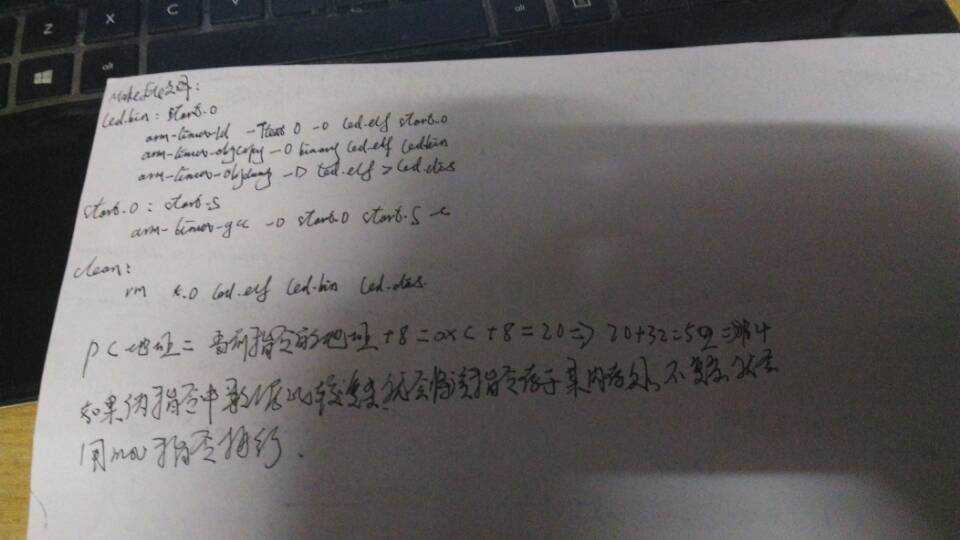 Z
X
C
V
alt
alt
Makefile文件:
led.bin: start.o
arm-linux-ld -Ttext 0 -o led.elf start.o
arm-linux-objcopy -O binary led.elf led.bin
arm-linux-objdump -D led.elf > led.dis
start.o: start.S
arm-linux-gcc -o start.o start.S -c
clean:
rm *.o led.elf led.bin led.dis
PC地址=当前指令的地址+8=0xc+8=20=>20+32=52=
如果伪指令中数据比较复杂就会将该指令存于某内存处,不复杂就会
用mov指令执行.